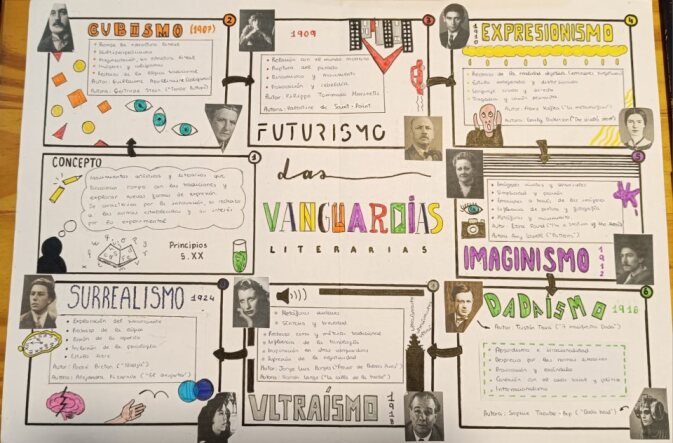 CUBISMO (1907)
2
• Rompe la estructura lineal
• Multiperspectivismo
• Imágenes y caligramas
• Rechazo de la lógica tradicional
Autor: Guillaume Apollinaire
Autora: Gertrude Stein ("Tender Buttons")
3
1909
• Relación con el mundo moderno
• Ruptura del pasado
• Dinamismo y movimiento
• Provocación y rebeldía
Autor: Filippo Tommaso Marinetti
Autora: Valentine de Saint-Point
FUTURISMO
4
1910
EXPRESIONISMO
• Rechazo de la realidad objetiva
• Estilo exagerado y distorsionado
• Lenguaje crudo y directo
Autor: Franz Kafka ("La metamorfosis")
Autora: Emily Dickinson
CONCEPTO
1
Movimientos artísticos y literarios que
buscaron romper con las tradiciones y
explorar nuevas formas de expresión.
Se caracteriza por la innovación, su rechazo
a las normas establecidas y su interés
por su experimental
Principios
S. XX
das
VANGUARDÍAS
LITERARIAS
5
• Imágenes
• Simplicidad y precisión
• Emociones a través de las imágenes
• Influencia de pintura y fotografía
• Metáfora y movimiento
Autor: Ezra Pound ("In a Station of the Metro")
Autora: Amy Lowell ("Patterns")
IMAGINISMO
1912
SURREALISMO 1924
• Exploración del
• Rechazo de la lógica
• Unión de lo opuesto
• Inclusión de la psicología
• Estilo libre
Autor: André Breton ("Nadja")
Autora: Alejandra Pizarnik
• Metáforas
• Síntesis y brevedad
• Rechazo rima y métrica tradicional
• Influencia de la tecnología
• Inspiración en otras vanguardias
Autor: Jorge Luis Borges ("Fervor de Buenos Aires")
Autora: Norah Lange ("La calle de la tarde")
ULTRAÍSMO
1918
6
DADAÍSMO 1916
Autor: Tristan Tzara ("7 manifiestos Dada")
Absurdismo e irracionalidad
Desprecio por las normas literarias
Provocación y escándalo
Conexión con el caos social y político
Internacionalismo
Autora: Sophie Taeuber-Arp ("Dada head")